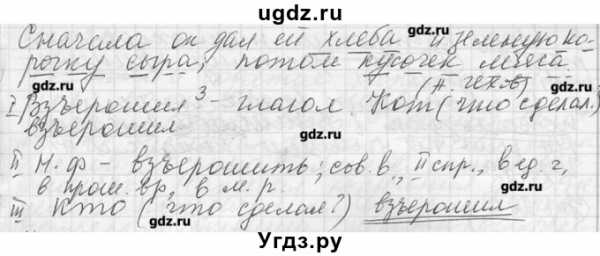 ugdz.ru
Сначала он дал ей хлеба и зеленую ко-
рочку сыра; потом кусочек мяса
(А. Чехов)
I Взъерошил³ - глагол. Кот (что сделал?)
взъерошил
II Н.ф - взъерошить; сов.в., II спр., в ед.ч,
в прош.вр, в м.р.
III Кто (что сделал?) взъерошил
gdz.ru gdz.ru
gdz.ru gdz.ru
gdz.ru gdz.ru
Угдз.ру